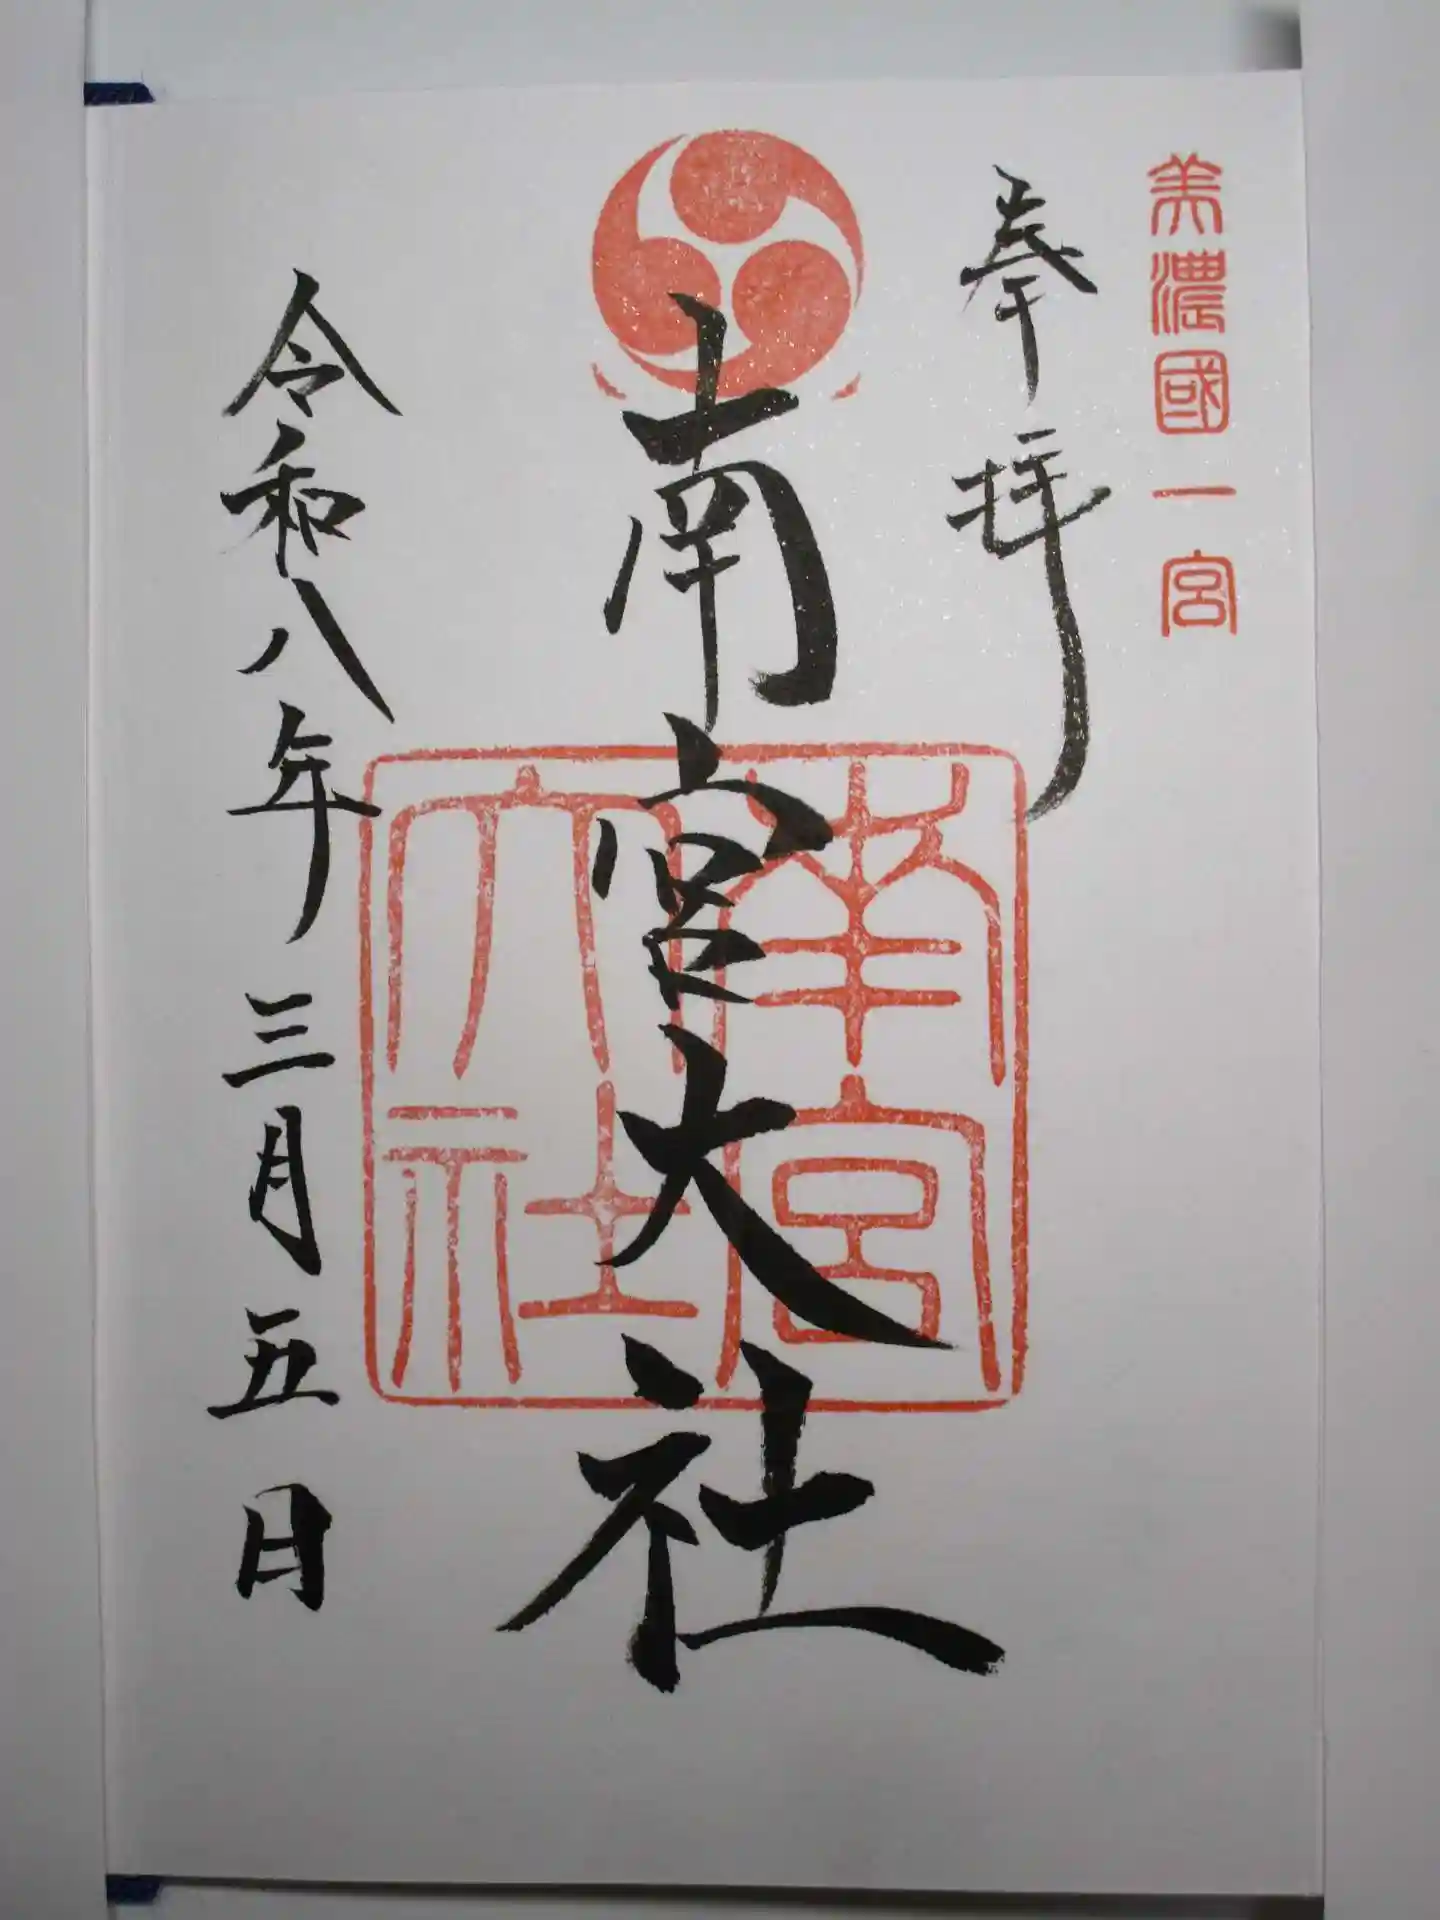 美濃國一宮
奉拝
南宮大社
南宮
大社
令和八年三月五日